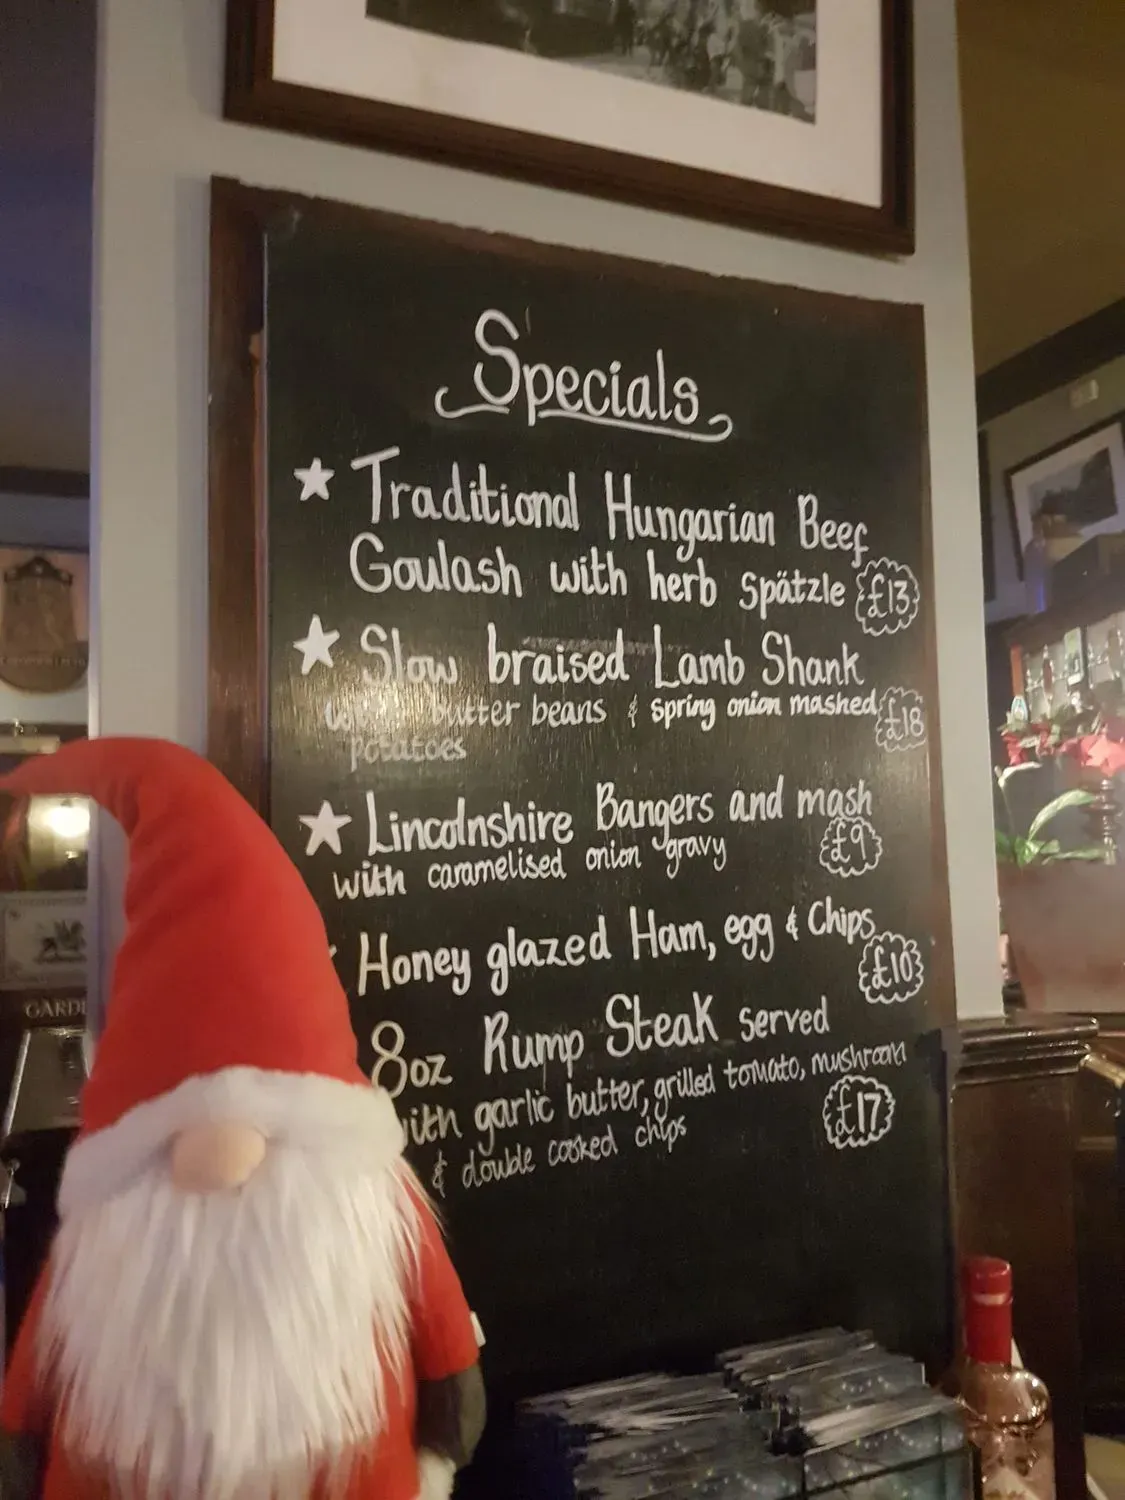 Specials
Traditional Hungarian Beef
Goulash with herb Spätzle £13
Slow braised Lamb Shank
with butter beans & spring onion mashed £18
potatoes
Lincolnshire Bangers and mash
with caramelised onion gravy £9
Honey glazed Ham, egg & Chips
£10
8oz Rump Steak served
with garlic butter, grilled tomato, mushroom
& double cooked chips £17
GARDE